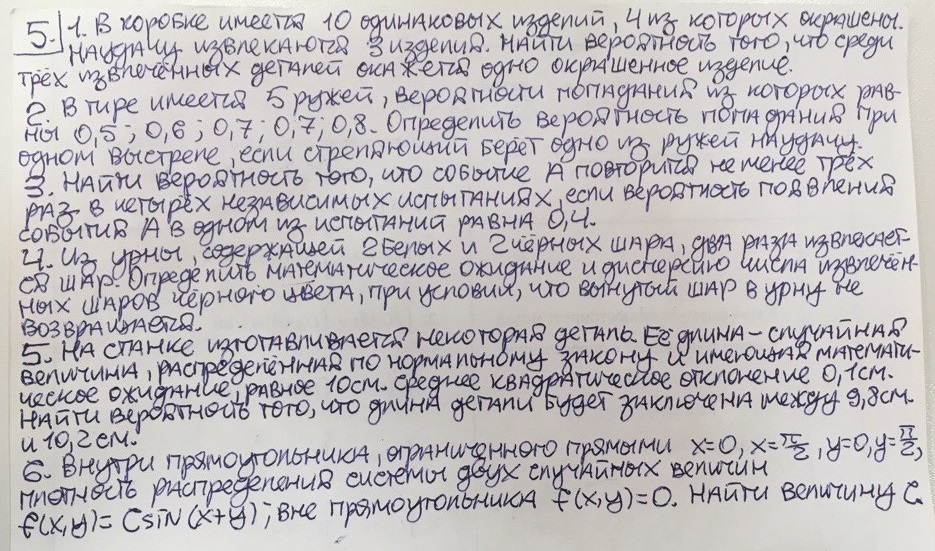 5. 1. В коробке имеется 10 одинаковых изделий, 4 из которых окрашены.
Наудачу извлекаются 3 изделия. Найти вероятность того, что среди
трёх извлечённых деталей окажется одно окрашенное изделие.
2. В тире имеется 5 ружей, вероятности попадания из которых рав-
ны 0,5; 0,6; 0,7; 0,7; 0,8. Определить вероятность попадания при
одном выстреле, если стреляющий берет одно из ружей наудачу.
3. Найти вероятность того, что событие А повторится не менее трёх
раз в четырёх независимых испытаниях, если вероятность появления
события А в одном из испытаний равна 0,4.
4. Из урны, содержащей 2 белых и 2 чёрных шара, два раза извлекает-
ся шар. Определить математическое ожидание и дисперсию числа извлечён-
ных шаров чёрного цвета, при условии, что вынутый шар в урну не
возвращается.
5. На станке изготавливается некоторая деталь. Её длина - случайная
величина, распределённая по нормальному закону и имеющая математи-
ческое ожидание, равное 10см. среднее квадратическое отклонение 0,1см.
Найти вероятность того, что длина детали будет заключена между 9,8см.
и 10,2см.
6. Внутри прямоугольника, ограниченного прямыми x=0, x=π/2, y=0, y=π/2,
плотность распределения системы двух случайных величин
f(x,y)= C sin(x+y); вне прямоугольника f(x,y)=0. Найти величину C.